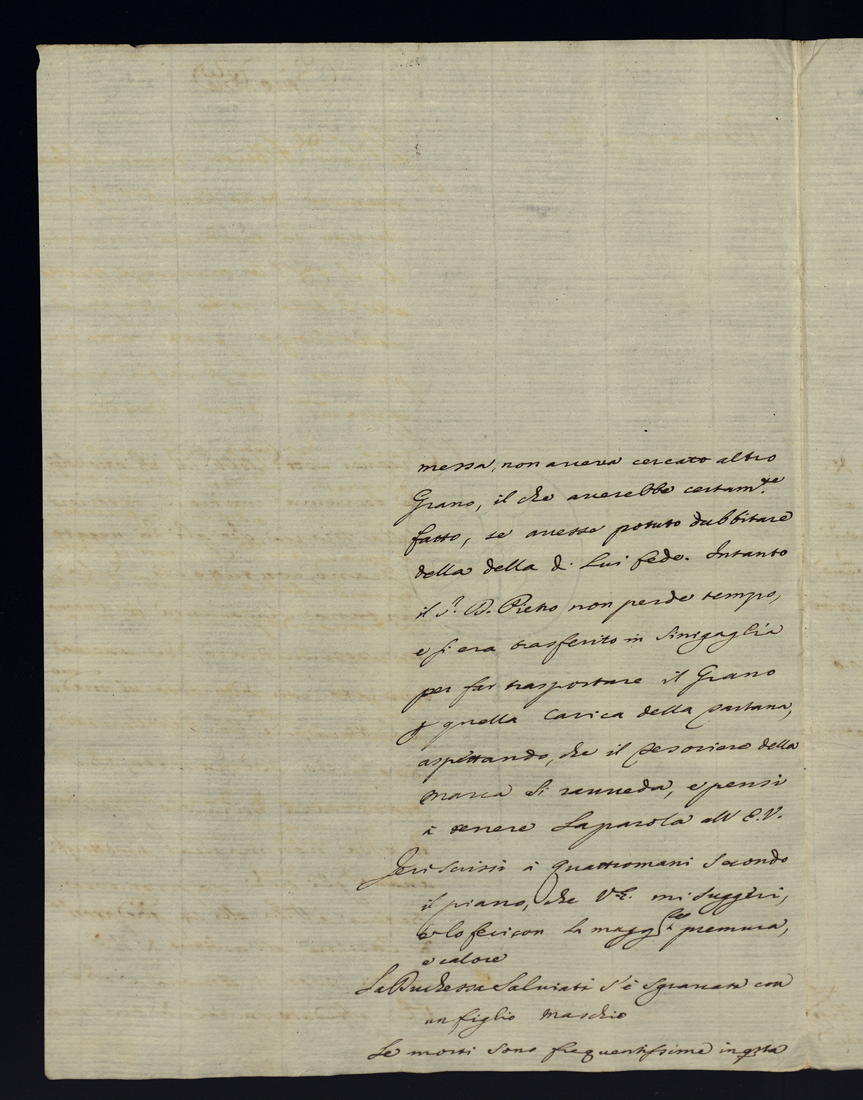 messa, non aveva cercato altro
Grano, il che averebbe certam.te
fatto, se avesse potuto dubbitare
della della di Lui fede. Intanto
il S.r D. Pietro non perde tempo,
e si era trasferito in Sinigaglia
per far trasportare il Grano
p quella Carica della Partana,
aspettando, che il Tesoriere della
Marca si ravveda, e pensi
à tenere la parola all' E.V.
Jeri scrissi à Quattromani secondo
il piano, che V.E. mi suggerì,
e lo feci con la magg.re premura,
e calore
La Duchessa Salviati s'è sgravata con
un figlio maschio
Le morti sono frequentissime in qsta